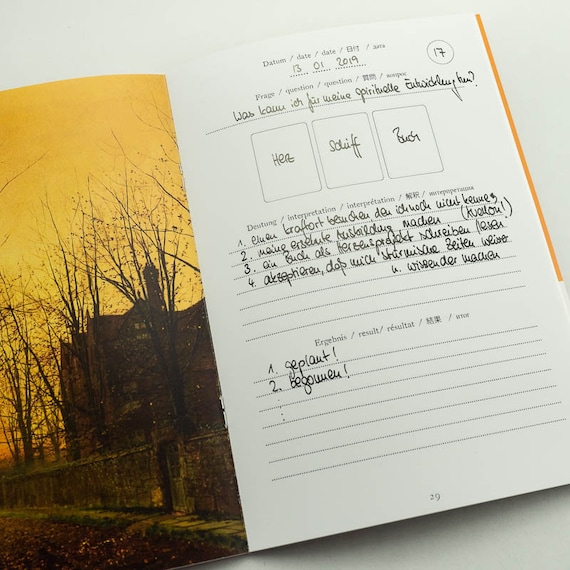 Datum / date / date / 日付 / дата
13 01 2019
17
Frage / question / question / 質問 / вопрос
Was kann ich für meine spirituelle Entwicklung tun?
Herz
Schiff
Buch
Deutung / interpretation / interprétation / 解釈 / интерпретация
1. einen Kraftort besuchen den ich noch nicht kenne
2. meine ersehnte Ausbildung machen
3. ein Buch als Herzensprojekt schreiben / lesen
4. akzeptieren, daß mich stürmische Zeiten weiser
u. wissender machen
Ergebnis / result / résultat / 結果 / итог
1. geplant!
2. begonnen!
:
29